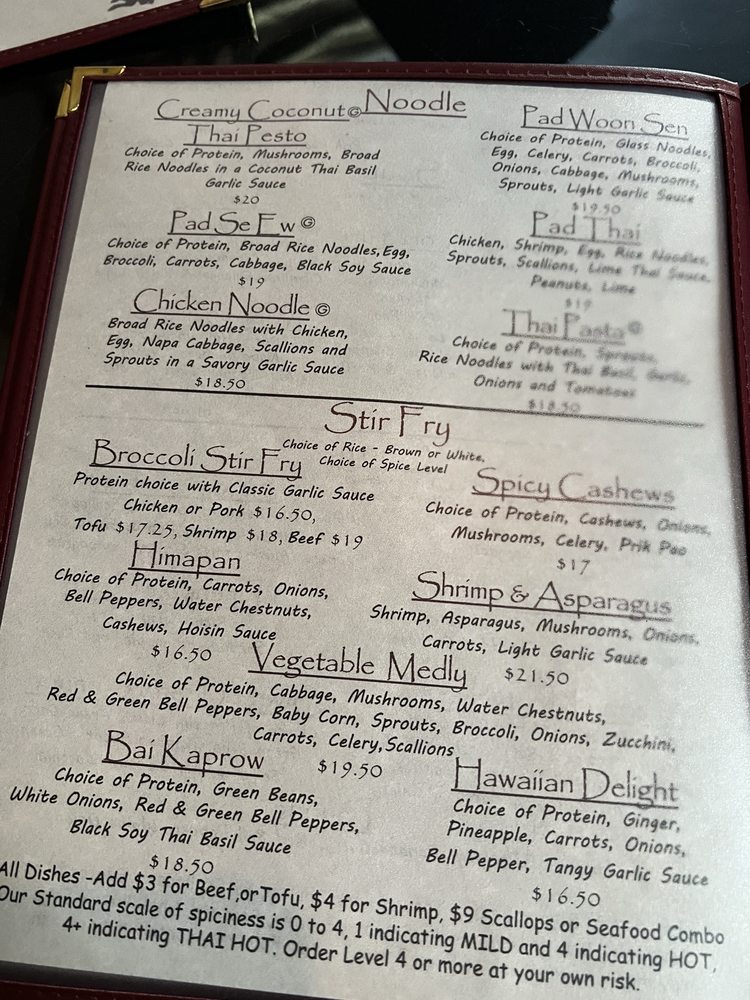 Creamy Coconut Ⓖ Noodle
Thai Pesto
Choice of Protein, Mushrooms, Broad
Rice Noodles in a Coconut Thai Basil
Garlic Sauce
$20
Pad Woon Sen
Choice of Protein, Glass Noodles,
Egg, Celery, Carrots, Broccoli,
Onions, Cabbage, Mushrooms,
Sprouts, Light Garlic Sauce
$19.50
Pad Se Ew Ⓖ
Choice of Protein, Broad Rice Noodles, Egg,
Broccoli, Carrots, Cabbage, Black Soy Sauce
$19
Pad Thai
Chicken, Shrimp, Egg, Rice Noodles,
Sprouts, Scallions, Lime Thai Sauce,
Peanuts, Lime
$19
Chicken Noodle Ⓖ
Broad Rice Noodles with Chicken,
Egg, Napa Cabbage, Scallions and
Sprouts in a Savory Garlic Sauce
$18.50
Thai Pasta Ⓖ
Choice of Protein, Sprouts,
Rice Noodles with Thai Basil, Garlic,
Onions and Tomatoes
$18.50
Stir Fry
Choice of Rice - Brown or White.
Choice of Spice Level
Broccoli Stir Fry
Protein choice with Classic Garlic Sauce
Chicken or Pork $16.50,
Tofu $17.25, Shrimp $18, Beef $19
Spicy Cashews
Choice of Protein, Cashews, Onions,
Mushrooms, Celery, Prik Pao
$17
Himapan
Choice of Protein, Carrots, Onions,
Bell Peppers, Water Chestnuts,
Cashews, Hoisin Sauce
$16.50
Shrimp & Asparagus
Shrimp, Asparagus, Mushrooms, Onions,
Carrots, Light Garlic Sauce
$21.50
Vegetable Medly
Choice of Protein, Cabbage, Mushrooms, Water Chestnuts,
Red & Green Bell Peppers, Baby Corn, Sprouts, Broccoli, Onions, Zucchini,
Carrots, Celery, Scallions
$19.50
Bai Kaprow
Choice of Protein, Green Beans,
White Onions, Red & Green Bell Peppers,
Black Soy Thai Basil Sauce
$18.50
Hawaiian Delight
Choice of Protein, Ginger,
Pineapple, Carrots, Onions,
Bell Pepper, Tangy Garlic Sauce
$16.50
All Dishes -Add $3 for Beef,orTofu, $4 for Shrimp, $9 Scallops or Seafood Combo
Our Standard scale of spiciness is 0 to 4, 1 indicating MILD and 4 indicating HOT,
4+ indicating THAI HOT. Order Level 4 or more at your own risk.